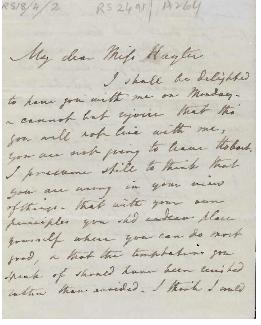 RS18/4/2 RS249
My dear Miss Hayter
I shall be delighted
to have you with me on Monday -
& cannot but rejoice that tho'
you will not live with me,
you are not going to leave Hobart.
I presume still to think that
you are wrong in your view
of things - that with your own
principles you shd place
yourself where you can do most
good, & that the temptations you
speak of should have been resisted
rather than avoided. I think I could